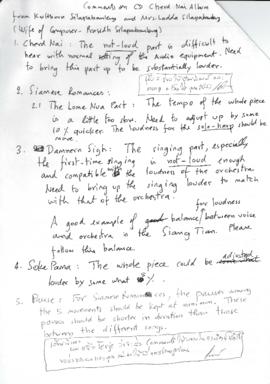 Comments on CD Cherd Nai Album
From Kulthorn Silapabanleng and Mrs. Ladda Silapabanleng
(Wife of Composer - Prasidh Silapabanleng)
1. Cherd Nai : The not-loud part is difficult to
hear with normal setting of the Audio equipment. Need
to bring this part up to be substantially louder.
2. Siamese Romances :
2.1 The Lome Nua Part : The tempo of the whole piece
is a little too slow. Need to adjust up by some
10% quicker. The loudness for the should be
3. Damnern Sigh : The singing part, especially
the first-time singing is not-loud enough
and compatible with the loudness of the orchestra.
Need to bring up the singing louder to match
with that of the orchestra.
for loudness
A good example of balance between voice
and orchestra is the Siang Tian. Please
follow this balance.
4. Soke Pama : The whole piece could be adjusted
louder by some what %.
5. Pause : For Siamese Romances, the pauses among
the 5 movements should be kept at minimum. These
pauses should be shorter in duration than those
between the different songs.